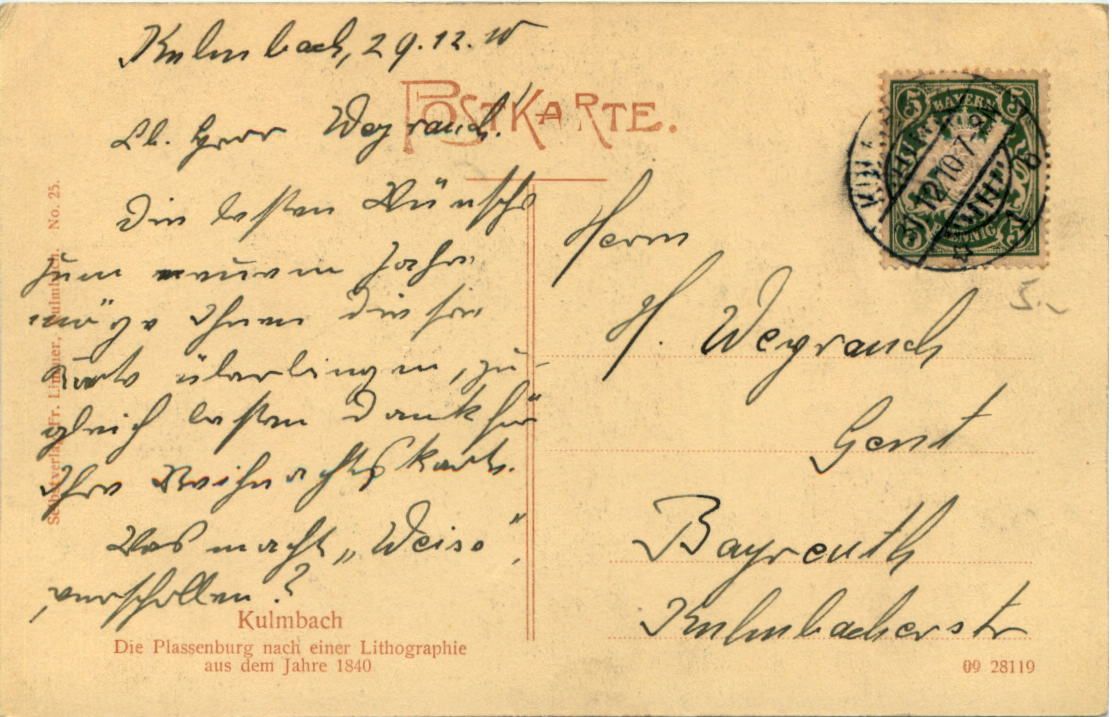 Kulmbach, 29.12.10
POSTKARTE.
Lb. Herr Weyrauch!
Die besten Wünsche
zum neuen Jahre
möge Ihnen diese
Karte überbringen, zu-
gleich besten Dank für
Ihre Weihnachtskarte.
Was macht „Weiss",
verschollen?
Herrn
H. Weyrauch
Gent
Bayreuth
Kulmbacherstr
5 BAYERN 5
5 PFENNIG
12 10 7-8
5.-
Selbstverlag Fr. Lindner, Kulmbach. No. 25.
Kulmbach
Die Plassenburg nach einer Lithographie
aus dem Jahre 1840
09 28119